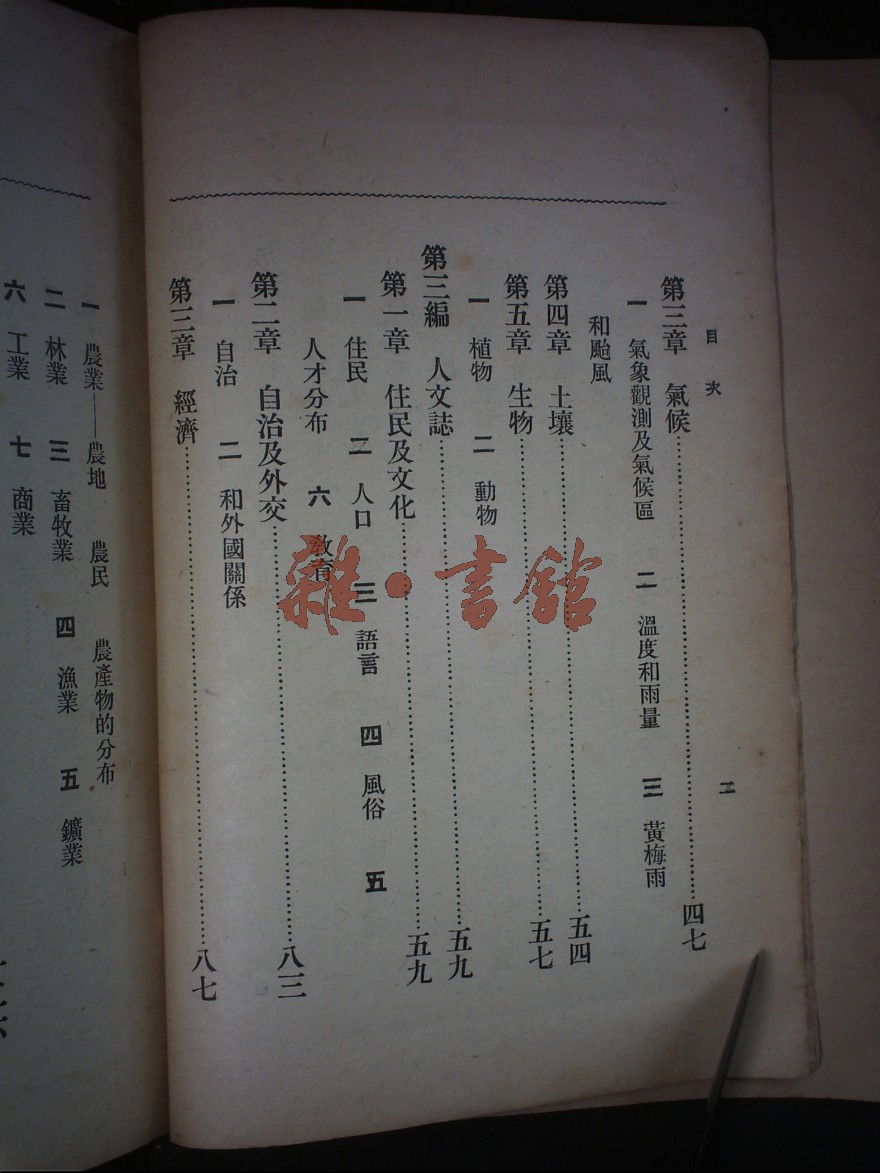 目次
二
第三章　氣候…………四七
一　氣象觀測及氣候區　二　溫度和雨量　三　黃梅雨
和颱風
第四章　土壤…………五四
第五章　生物…………五七
一　植物　二　動物
第三編　人文誌…………五九
第一章　住民及文化…………五九
一　住民　二　人口　三　語言　四　風俗　五
人才分布　六　教育
第二章　自治及外交…………八三
一　自治　二　和外國關係
第三章　經濟…………八七
一　農業——農地　農民　農產物的分布
二　林業　三　畜牧業　四　漁業　五　鑛業
六　工業　七　商業
雜·書館